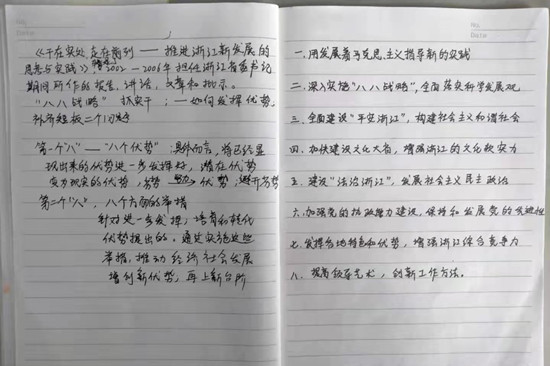 《干在实处 走在前列——推进浙江新发展的
思考与实践》 2002—2006年担任浙江省委书记
期间所作的报告、讲话、文章和批示。
"八八战略" 抓实干；—如何发挥优势,
补齐短板二个问题
第一个"八"—"八个优势"：具体而言,将已经显
现出来的优势进一步发挥好,潜在优势
变为现实的优势,劣势 优势；避开劣势
第二个"八",八个方面的举措
针对进一步发挥,培育和转化
优势提出的。通过实施这些
举措,推动经济社会发展
增创新优势,再上新台阶
一.用发展着的马克思主义指导新的实践
二.深入实施"八八战略",全面落实科学发展观
三.全面建设"平安浙江",构建社会主义和谐社会
四.加快建设文化大省,增强浙江的文化软实力
五.建设"法治浙江",发展社会主义民主政治
六.加强党的执政能力建设,保持和发展党的先进性
七.发挥各地特色和优势,增强浙江综合竞争力
八.提高领导艺术,创新工作方法。